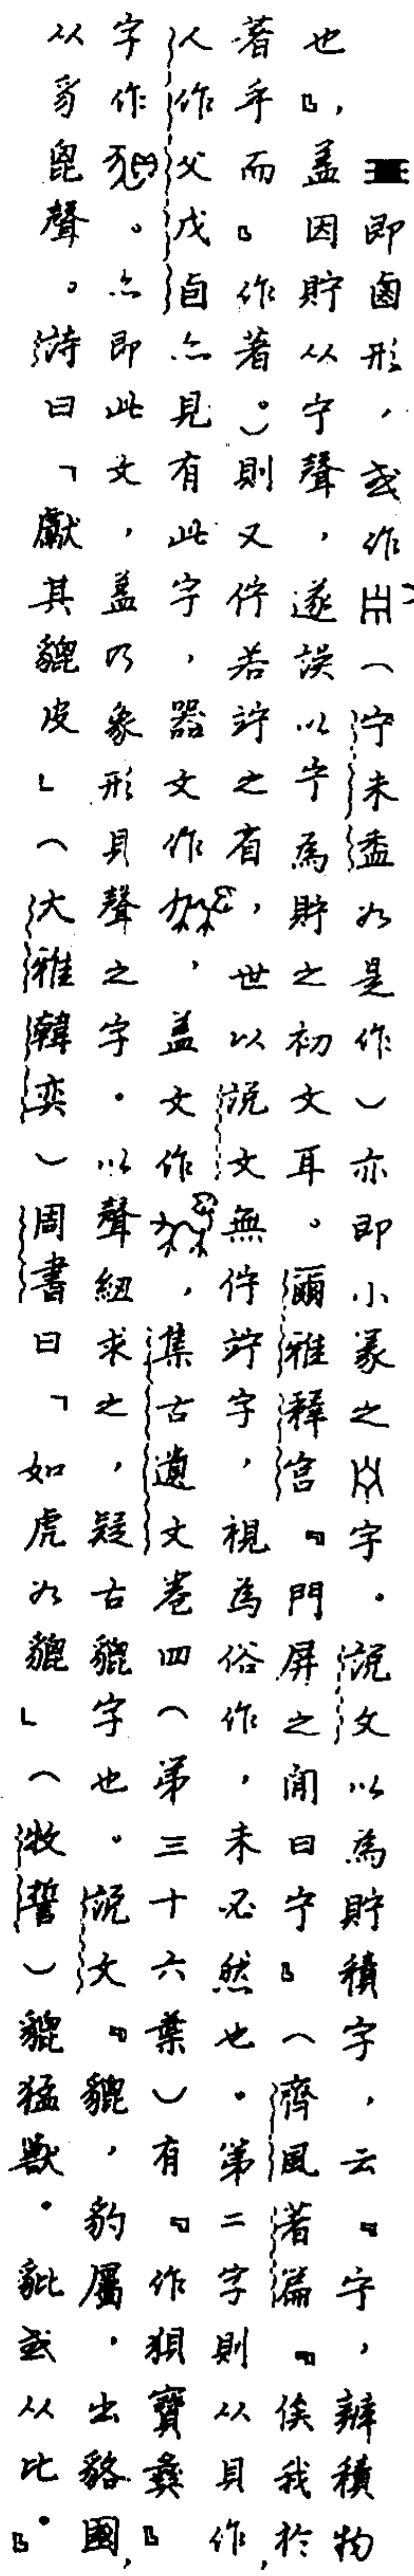 即鹵形，或作（宁未盉如是作）亦即小篆之字．說文以為貯積字，云『宁，辨積物
也』，蓋因貯从宁聲，遂誤以宁為貯之初文耳。爾雅釋宮『門屏之閒曰宁』（齊風著篇『俟我於
著乎而』作著。）則又佇若竚之省，世以說文無佇竚字，視為俗作，未必然也．第二字則从貝作，
人作父戊卣亦見有此字，器文作，蓋文作，集古遺文卷四（第三十六葉）有『作狽寶彝』
字作。亦即此文，蓋乃象形貝聲之字．以聲紐求之，疑古貔字也。說文『貔，豹屬，出貉國，
从豸毘聲。詩曰「獻其貔皮」（大雅韓奕）周書曰「如虎如貔」（牧誓）貔猛獸．豼或从比。』